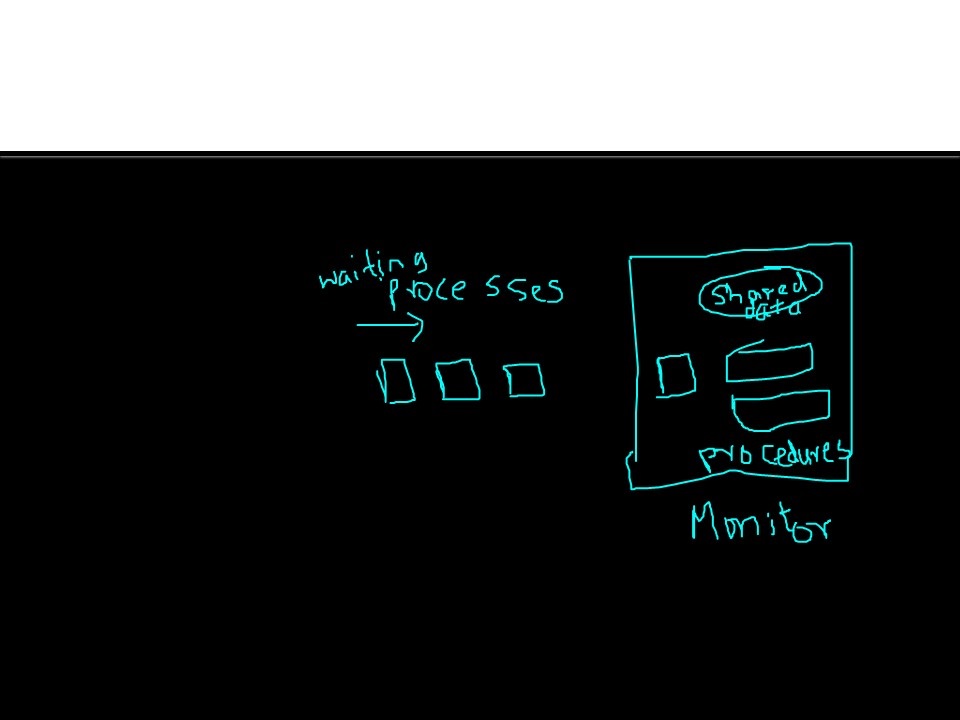 waiting
processes
shared
data
procedures
Monitor